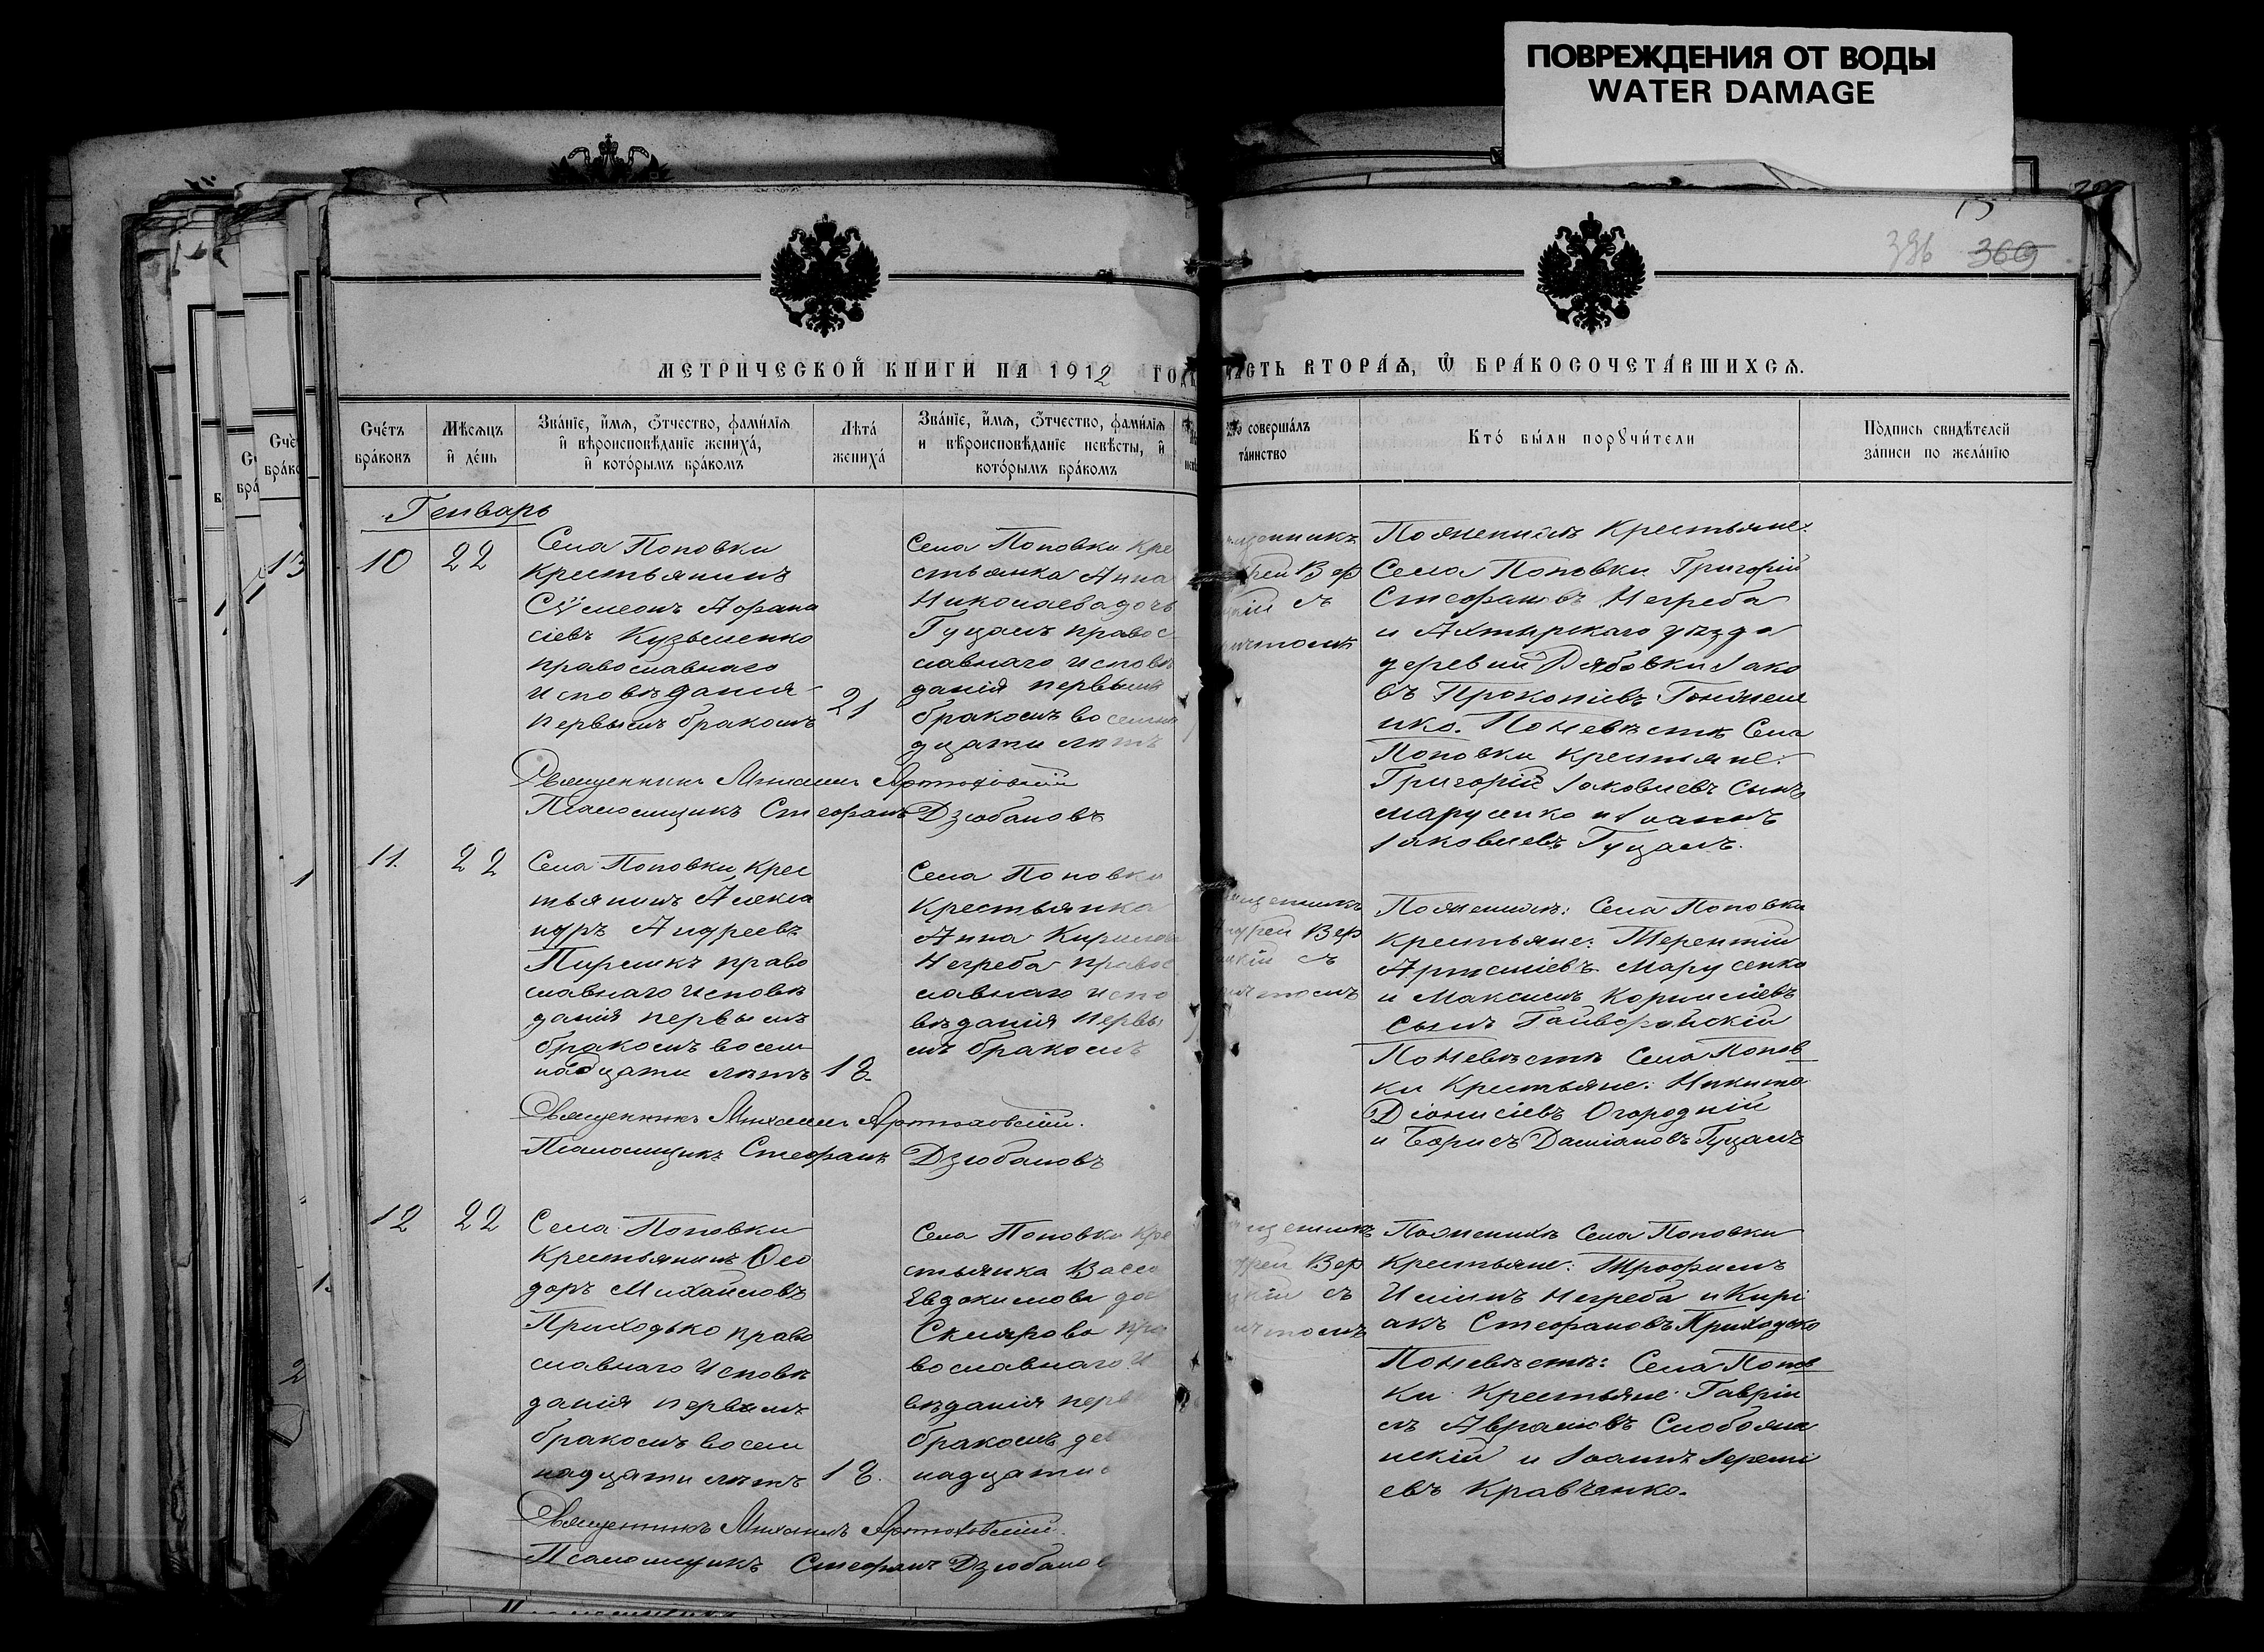 ПОВРЕЖДЕНИЯ ОТ ВОДЫ
WATER DAMAGE
369
МЕТРИЧЕСКОЙ КНИГИ НА 1912 ГОДЪ
ЧАСТЬ ВТОРАѦ, Ѿ БРАКОСОЧЕТАВШИХСѦ.
Счетъ браковъ
Мѣсяцъ и день
Званіе, имя, отчество, фамилія и вѣроисповѣданіе жениха, и которымъ бракомъ
Лѣта жениха
Званіе, имя, отчество, фамилія и вѣроисповѣданіе невѣсты, и которымъ бракомъ
совершалъ таинство
Кто были поручители
Подпись свидѣтелей записи по желанію
Генварь
10
22
Села Поповки
крестьянинъ
Сѵмеонъ Афана
сіевъ Кузьменко
православнаго
исповѣданія
первымъ бракомъ
21
Села Поповки кре
стьянка Анна
Николаева дочь
Гуцалъ правос
лавнаго исповѣ
данія первымъ
бракомъ восемна
дцати лѣтъ
Вер
съ
По женихѣ крестьяне:
Села Поповки Григорій
Стефановъ Негреба
и Ахтырскаго уѣзда
деревни Рябовки Іако
въ Прокопіевъ
нко. По невѣстѣ Села
Поповки крестьяне:
Григорій Іаковлевъ сынъ
Марусенко и Іоаннъ
Іаковлевъ Гуцалъ.
Священникъ Михаилъ
Псаломщикъ Стефанъ Дзюбановъ
11.
22
Села Поповки, крес
тьянинъ Алекса
ндръ Андреевъ
Пирликъ право
славнаго исповѣ
данія первымъ
бракомъ восем
надцати лѣтъ
18
Села Поповки
крестьянка
Анна Кирилова
Негреба правос
лавнаго испо
вѣданія первы
мъ бракомъ
Андрей Вер
съ
По женихѣ: Села Поповки
крестьяне: Терентій
Артеміевъ Марусенко
и Максимъ Корниліевъ
сынъ Гайворонскій
По невѣстѣ Села Попов
ки крестьяне: Никита
Діонисіевъ Огородній
и Борисъ Даміановъ Гуцалъ
Священникъ Михаилъ
Псаломщикъ Стефанъ Дзюбановъ
12
22
Села Поповки
крестьянинъ Ѳео
доръ Михайловъ
Приходько право
славнаго исповѣ
данія первымъ
бракомъ восем
надцати лѣтъ
18.
Села Поповки кре
стьянка Васса
Евдокимова доч
Склярова пра
вославнаго и
вѣданія перв
бракомъ дев
надцати
Вер
съ
По женихѣ Села Поповки
крестьяне: Трофимъ
Негреба и Кирі
акъ Стефановъ Приходько
По невѣстѣ: Села Попов
ки крестьяне: Гаврии
лъ Авраамовъ Слобожан
нскій и Іоаннъ Іеремі
евъ Кравченко.
Священникъ Михаилъ
Псаломщикъ Стефанъ Дзюбанов